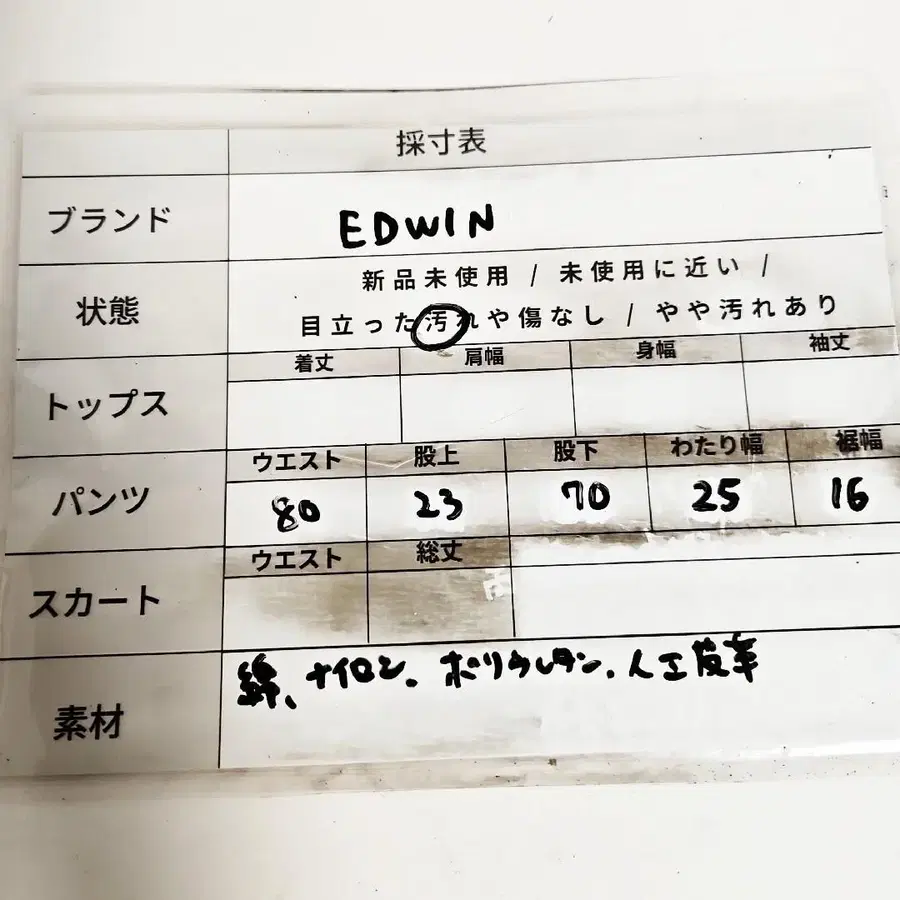 採寸表
ブランド EDWIN
新品未使用 / 未使用に近い /
状態
目立った汚れや傷なし / やや汚れあり
着丈 肩幅 身幅 袖丈
トップス
ウエスト 股上 股下 わたり幅 裾幅
パンツ 80 23 70 25 16
ウエスト 総丈
スカート
綿、ナイロン、ポリウレタン、人工皮革
素材